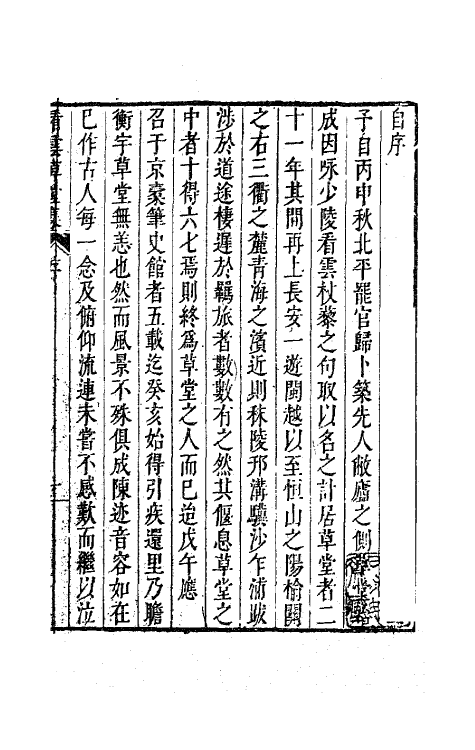 自序
予自丙申秋北平罷官歸卜築先人敝廬之側
成因咏少陵看雲杖藜之句取以名之計居草堂者二
十一年其間再上長安一遊閩越以至恒山之陽榆關
之右三衢之麓青海之濱近則秣陵邗溝驥沙乍浦跋
涉於道途棲遲於羈旅者數數有之然其偃息草堂之
中者十得六七焉則終爲草堂之人而巳迨戊午應
召于京橐筆史館者五載迄癸亥始得引疾還里乃瞻
衡宇草堂無恙也然而風景不殊俱成陳迹音容如在
巳作古人每一念及俯仰流連未嘗不感歎而繼以泣
看雲草堂集 序